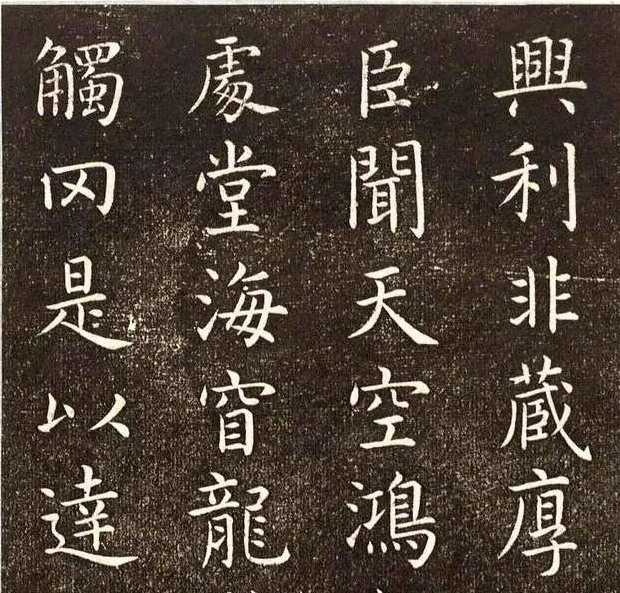 興利非蔵厚
臣聞天空鴻
處堂海窅龍
觸冈是以達